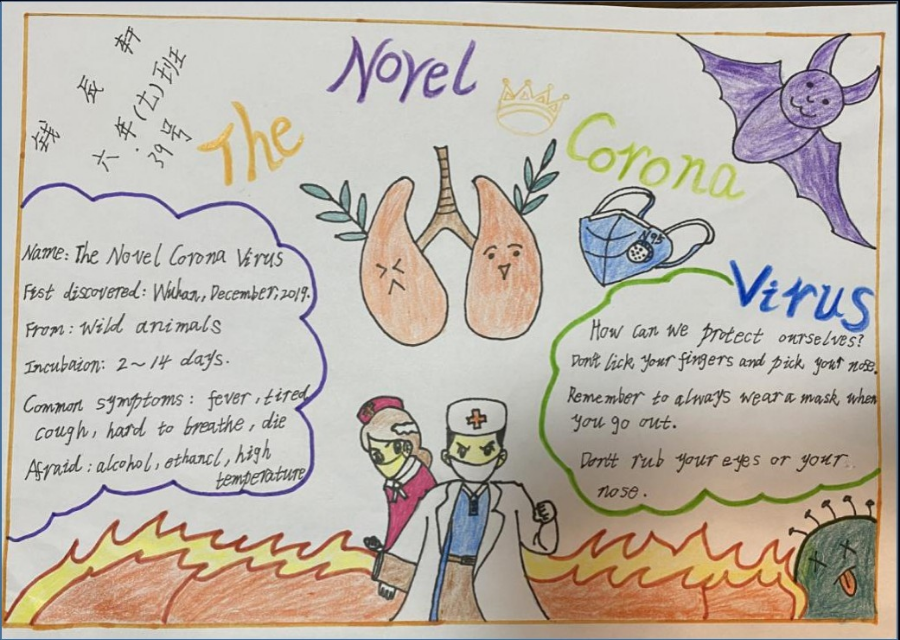 钱辰轩
六年(七)班
39号
The Novel Corona Virus
N95
Name: The Novel Corona Virus
First discovered: Wuhan, December, 2019.
From: wild animals
Incubaion: 2~14 days.
Common symptoms: fever, tired
cough, hard to breathe, die
Afraid: alcohol, ethancl, high
temperature
How can we protect ourselves?
Don't lick your fingers and pick your nose.
Remember to always wear a mask when
you go out.
Don't rub your eyes or your
nose.